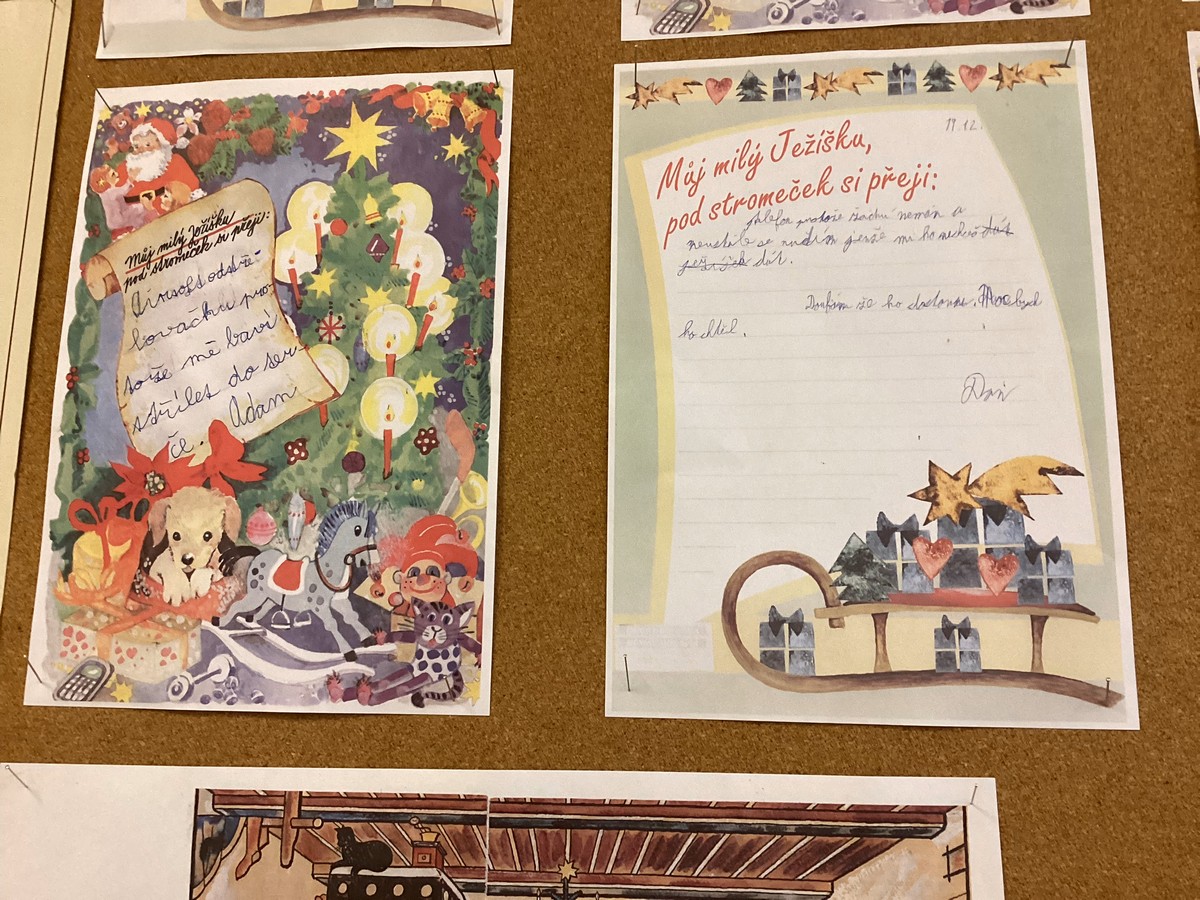 Můj milý Ježíšku
pod stromeček si přeji:
Airsoft odstře-
lovačku pro-
tože mě baví
střílet do ter-
če. Adam
19.12.
Můj milý Ježíšku,
pod stromeček si přeji:
telefon protože žádný nemám a
neustále se mi ho
dát.
Doufám že ho dostanu. Moc bych
ho chtěl.